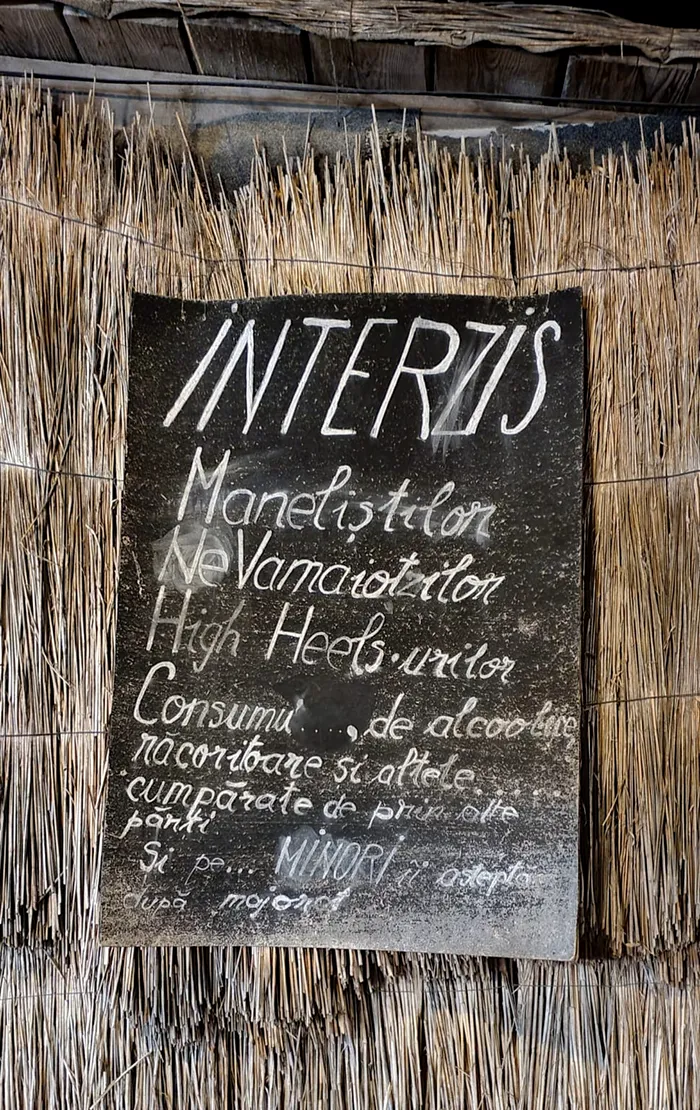 INTERZIS
Maneliștilor
NeVamaiotzilor
High Heels-urilor
Consumu'..., de alcoolure
răcoritoare si altele.....
cumpărate de prin alte
părti
Si pe... MINORI îi astepta
după majorat